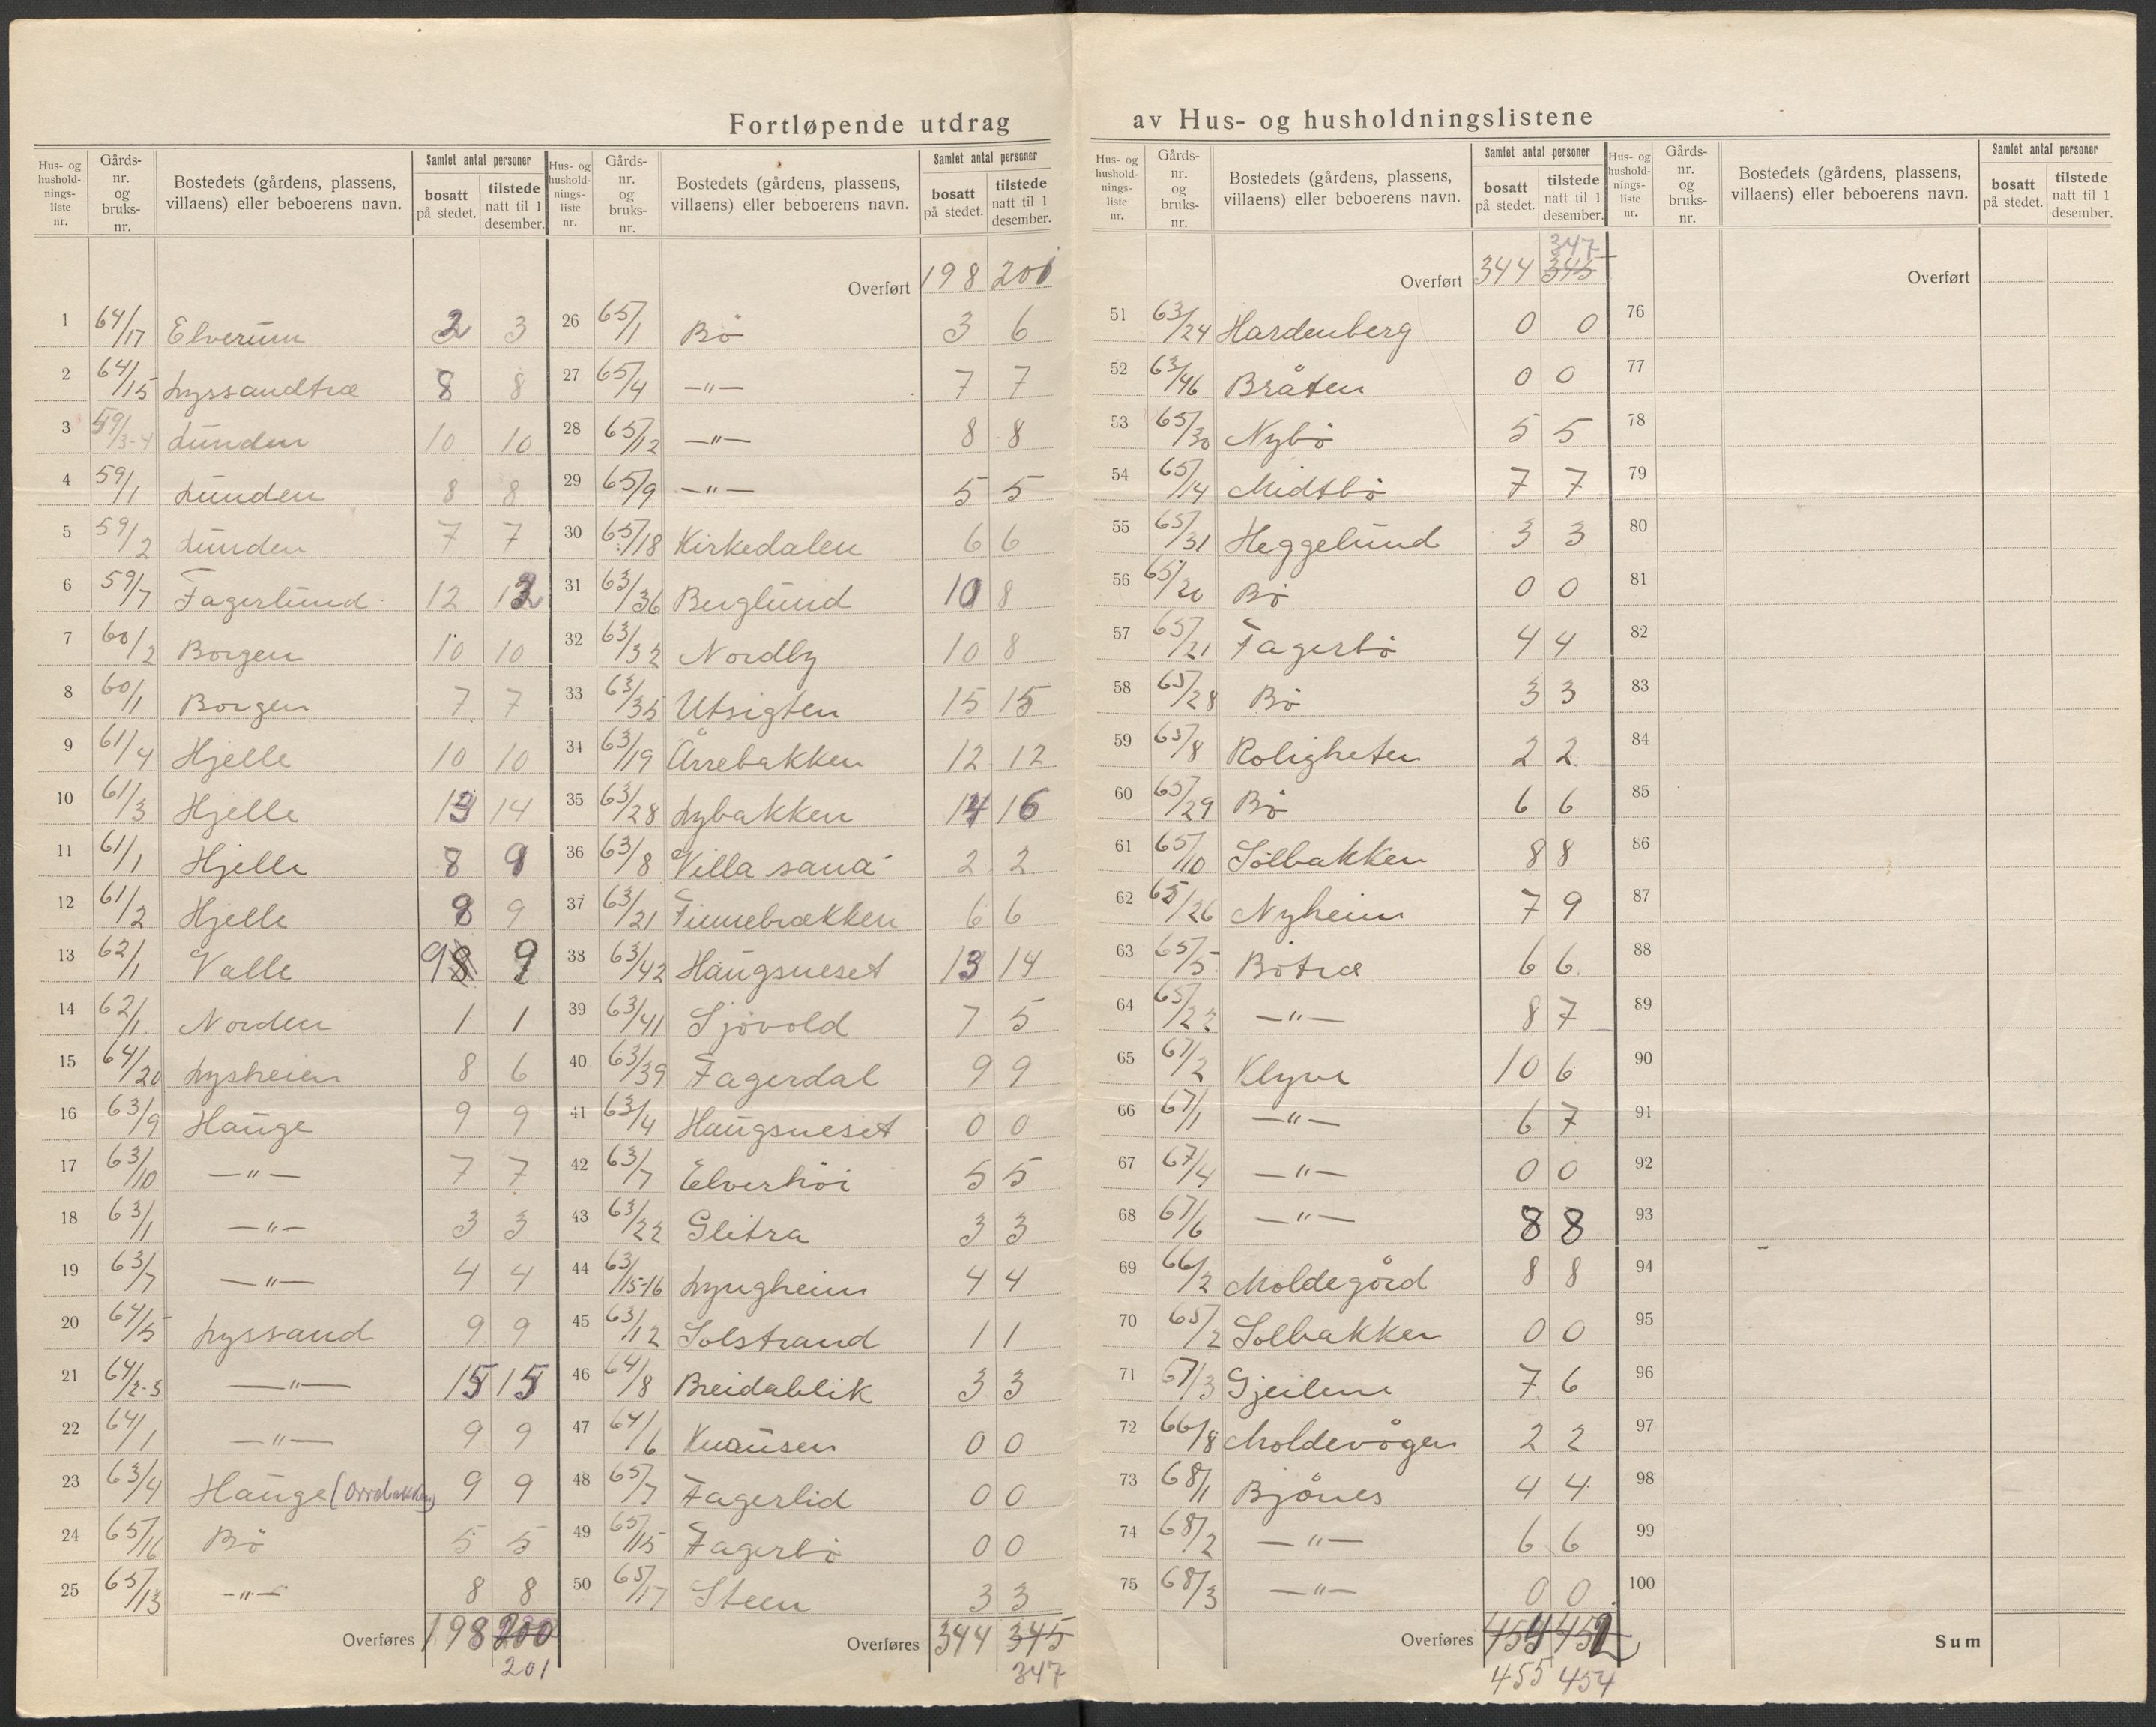 Fortløpende utdrag av Hus- og husholdningslistene
Hus- og hushold- nings- liste nr. Gårds- nr. og bruks- nr. Bostedets (gårdens, plassens, villaens) eller beboerens navn. Samlet antal personer bosatt på stedet. tilstede natt til 1 desember.
1 64/17 Elverum 2 3
2 64/15 Lyssandtræ 8 8
3 59/3-4 Lunden 10 10
4 59/1 Lunden 8 8
5 59/2 Lunden 7 7
6 59/7 Fagerlund 12
7 60/2 Borgen 10 10
8 60/1 Borgen 7 7
9 61/4 Hjelle 10 10
10 61/3 Hjelle 13 14
11 61/1 Hjelle 8 9
12 61/2 Hjelle 9
13 62/1 Valle 9 8 9
14 62/1 Norden 1 1
15 64/20 Lysheien 8 6
16 63/9 Hauge 9 9
17 63/10 —"— 7 7
18 63/1 —"— 3 3
19 63/7 —"— 4 4
20 64/5 Lyssand 9 9
21 64/2-3 —"— 15 15
22 64/1 —"— 9 9
23 63/4 Hauge (Orrebakken) 9 9
24 65/16 Bö 5 5
25 65/13 —"— 8 8
Overføres 198 200
201
Hus- og hushold- nings- liste nr. Gårds- nr. og bruks- nr. Bostedets (gårdens, plassens, villaens) eller beboerens navn. Samlet antal personer bosatt på stedet. tilstede natt til 1 desember.
Overført 198 201
26 65/1 Bö 3 6
27 65/4 —"— 7 7
28 65/12 —"— 8 8
29 65/9 —"— 5 5
30 65/18 Kirkedalen 6 6
31 63/36 Berglund 10 8
32 63/32 Nordby 10 8
33 63/35 Utsigten 15 15
34 63/19 Årrebakken 12 12
35 63/28 Lybakken 14 16
36 63/8 Villa sana 2 2
37 63/21 Finnebrækken 6 6
38 63/42 Haugsneset 13 14
39 63/41 Sjövold 7 5
40 63/39 Fagerdal 9 9
41 63/4 Haugsneset 0 0
42 63/7 Elverhöi 5 5
43 63/22 Glitra 3 3
44 63/15-16 Lyngheim 4 4
45 63/12 Solstrand 1 1
46 64/8 Breidablik 3 3
47 64/6 Knausen 0 0
48 65/7 Fagerlid 0 0
49 65/15 Fagerbö 0 0
50 65/17 Steen 3 3
Overføres 344 345
347
Hus- og hushold- nings- liste nr. Gårds- nr. og bruks- nr. Bostedets (gårdens, plassens, villaens) eller beboerens navn. Samlet antal personer bosatt på stedet. tilstede natt til 1 desember.
347
Overført 344 345
51 63/24 Hardenberg 0 0
52 63/46 Bråten 0 0
53 65/30 Nybö 5 5
54 65/14 Midtbö 7 7
55 65/31 Heggelund 3 3
56 65/20 Bö 0 0
57 65/21 Fagerbö 4 4
58 65/28 Bö 3 3
59 65/8 Roligheten 2 2
60 65/29 Bö 6 6
61 65/10 Solbakken 8 8
62 65/26 Nyheim 7 9
63 65/5 Bötræ 6 6
64 65/22 —"— 8 7
65 67/2 Klyve 10 6
66 67/1 —"— 6 7
67 67/4 —"— 0 0
68 67/6 —"— 8 8
69 66/2 Moldegård 8 8
70 65/2 Solbakken 0 0
71 67/3 Gjeilene 7 6
72 66/8 Moldevågen 2 2
73 68/1 Bjönes 4 4
74 68/2 —"— 6 6
75 68/3 —"— 0 0
Overføres 454 452
455 454
Hus- og hushold- nings- liste nr. Gårds- nr. og bruks- nr. Bostedets (gårdens, plassens, villaens) eller beboerens navn. Samlet antal personer bosatt på stedet. tilstede natt til 1 desember.
Overført
76
77
78
79
80
81
82
83
84
85
86
87
88
89
90
91
92
93
94
95
96
97
98
99
100
Sum